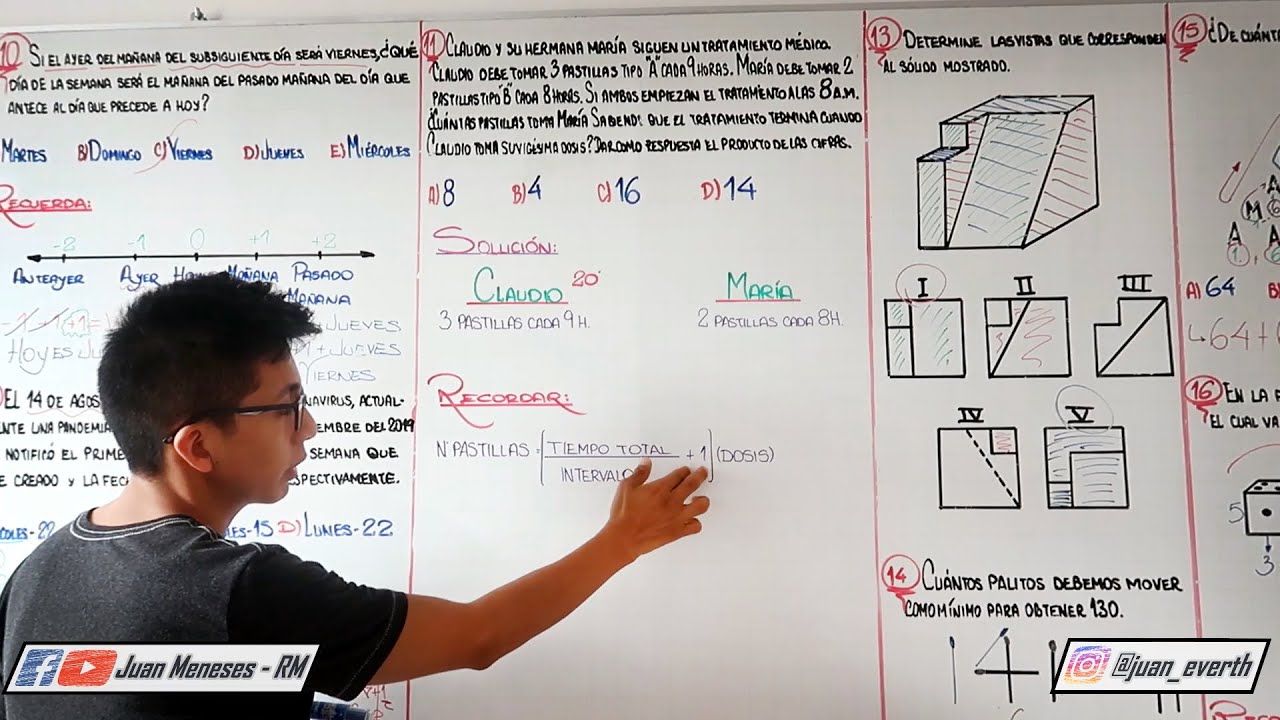 10 SI EL AYER DEL MAÑANA DEL SUBSIGUIENTE DÍA SERÁ VIERNES, ¿QUÉ
DÍA DE LA SEMANA SERÁ EL MAÑANA DEL PASADO MAÑANA DEL DÍA QUE
ANTECE AL DÍA QUE PRECEDE A HOY?
MARTES B) DOMINGO C) VIERNES D) JUEVES E) MIÉRCOLES
RECUERDA:
-2 -1 0 +1 +2
ANTEAYER AYER HOY MAÑANA PASADO
MAÑANA
JUEVES
HOY ES + JUEVES
VIERNES
EL 14 DE AGOS NAVIRUS, ACTUAL-
NTE UNA PANDEMIA EMBRE DEL 2019
NOTIFICÓ EL PRIME SEMANA QUE
E CREADO Y LA FEC SPECTIVAMENTE.
COLES-22 ES-15 D) LUNES-22
11 CLAUDIO Y SU HERMANA MARÍA SIGUEN UN TRATAMIENTO MÉDICO.
CLAUDIO DEBE TOMAR 3 PASTILLAS TIPO "A" CADA 9 HORAS. MARÍA DEBE TOMAR 2
PASTILLAS TIPO "B" CADA 8 HORAS. SI AMBOS EMPIEZAN EL TRATAMIENTO A LAS 8 A.M.
¿CUÁNTAS PASTILLAS TOMA MARÍA SABEND: QUE EL TRATAMIENTO TERMINA CUANDO
CLAUDIO TOMA SU VIGÉSIMA DOSIS? DAR COMO RESPUESTA EL PRODUCTO DE LAS CIFRAS.
A) 8 B) 4 C) 16 D) 14
SOLUCIÓN:
CLAUDIO 20° MARÍA
3 PASTILLAS CADA 9 H. 2 PASTILLAS CADA 8H.
RECORDAR:
N° PASTILLAS = (TIEMPO TOTAL + 1) (DOSIS)
INTERVALO
13 DETERMINE LAS VISTAS QUE CORRESPONDEN
AL SÓLIDO MOSTRADO.
I II III
IV V
14 CUÁNTOS PALITOS DEBEMOS MOVER
COMO MÍNIMO PARA OBTENER 130.
15 ¿DE CUÁNT
A
M
A A
1
A) 64 B)
64 +
16 EN LA F
EL CUAL VA
5
3
Juan Meneses - RM
@juan_everth